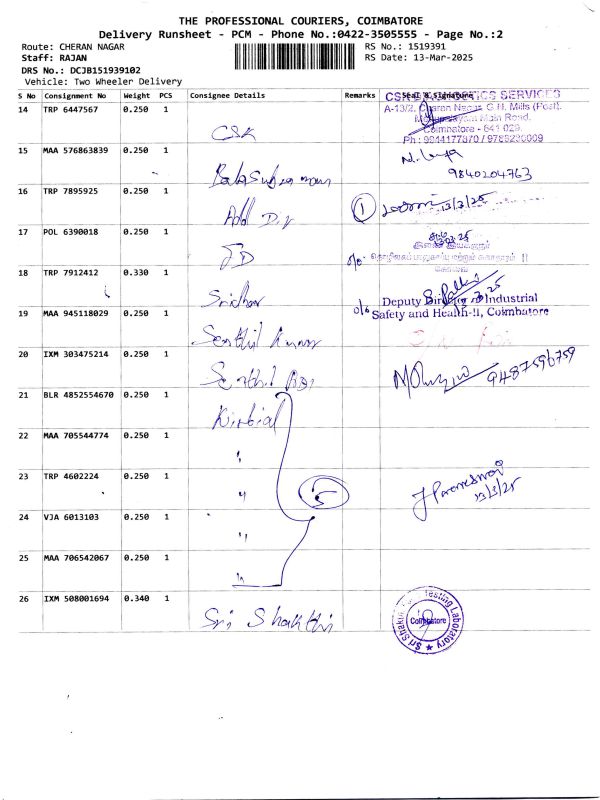 THE PROFESSIONAL COURIERS, COIMBATORE
Delivery Runsheet - PCM - Phone No.:0422-3505555 - Page No.:2
Route: CHERAN NAGAR
RS No.: 1519391
Staff: RAJAN
RS Date: 13-Mar-2025
DRS No.: DCJB151939102
Vehicle: Two Wheeler Delivery
S No Consignment No Weight PCS Consignee Details Remarks Seal & Signature
14 TRP 6447567 0.250 1 CSK
A-13/2, Cheran Nagar, G.N. Mills (Post),
Main Road,
Coimbatore - 641 029.
15 MAA 576863839 0.250 1
9840204763
16 TRP 7895925 0.250 1 1 13/3/25
17 POL 6390018 0.250 1 JD
18 TRP 7912412 0.330 1 Sridhar
Deputy Industrial
Safety and Health-II, Coimbatore
19 MAA 945118029 0.250 1 Senthil Kumar
20 IXM 303475214 0.250 1 Senthil
9487596759
21 BLR 4852554670 0.250 1
22 MAA 705544774 0.250 1 "
23 TRP 4602224 0.250 1 " 5
13/3/25
24 VJA 6013103 0.250 1 "
25 MAA 706542067 0.250 1 "
26 IXM 508001694 0.340 1 Sri Shakthi
Sri Shakthi Testing Laboratory
Coimbatore